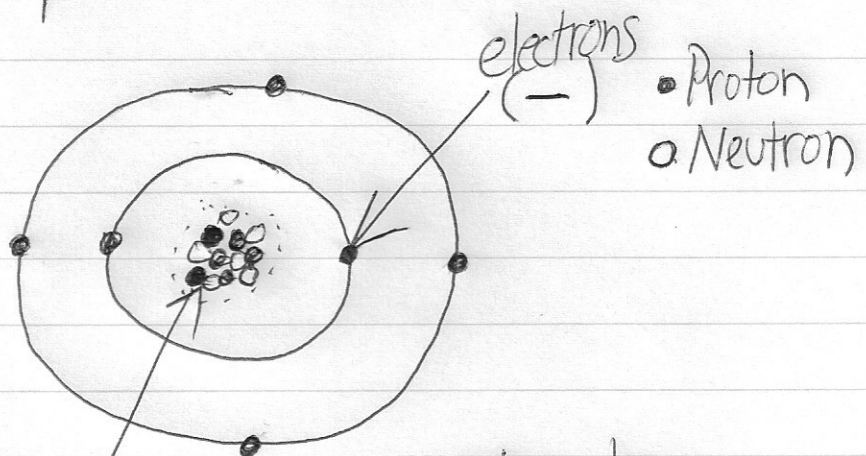 electrons
(–)
Proton
Neutron